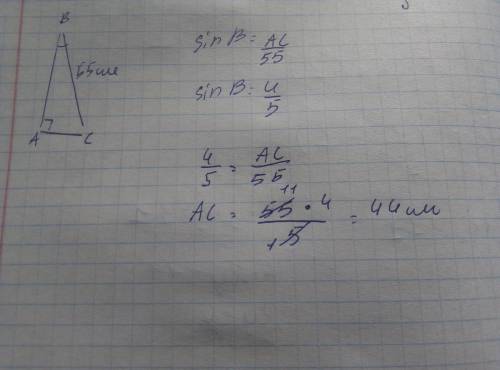 B
55см
A C
sin B = AC/55
sin B = 4/5
4/5 = AC/55
AC = 55 11 · 4 / 1 5 = 44см